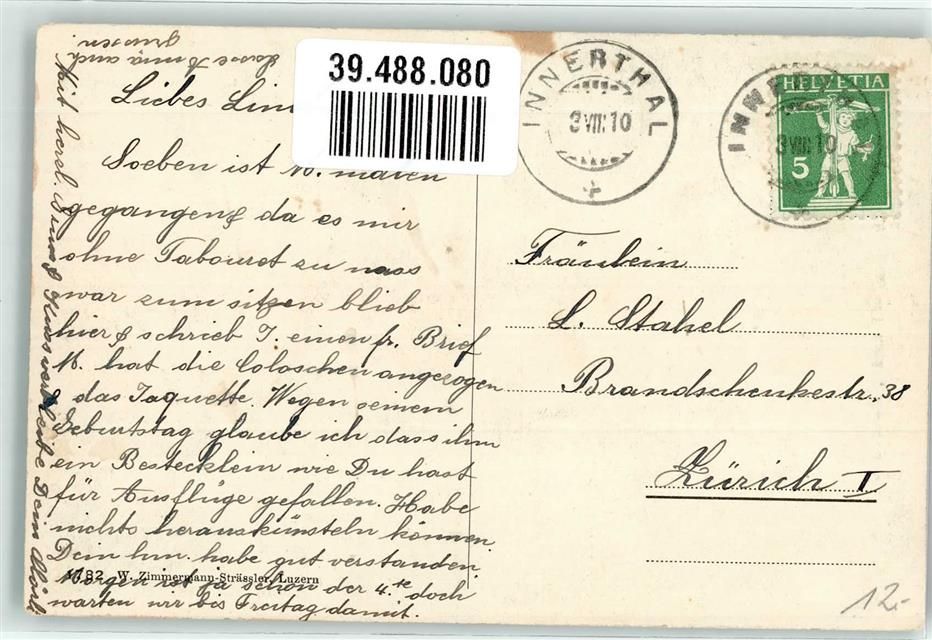 39.488.080
Liebes
Soeben ist M. malen
gegangen & da es mir
ohne Tabouret zu nass
war zum sitzen blieb
hier & schrieb J. einen fr. Brief
M. hat die Coloschen angezogen
das Jaquette. Wegen seinem
Geburtstag glaube ich dass ihm
ein Bestecklein wie Du hast
für Ausflüge gefallen. Habe
nichts herauskünsteln können.
Dein hm. habe gut verstanden
Morgen ist ja schon der 4.te doch
warten wir bis Freitag damit.
Mit herzl. Gruss & Kuss verbleibe Dein
Lasse Anna auch
grüssen.
4782 W. Zimmermann-Strässler, Luzern
INNERTHAL
3 VIII 10
INNERTHAL
3 VIII 10
HELVETIA
5
Fräulein
L. Stahel
Brandschenkestr. 38
Zürich I
12.-